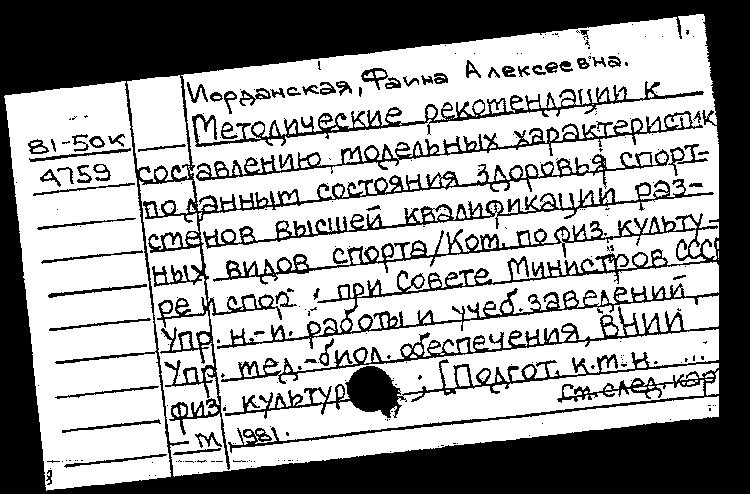 1.
Иорданская, Фаина Алексеевна.
81-50К
4759
Методические рекомендации к
составлению модельных характеристик
по данным состояния здоровья спорт-
сменов высшей квалификации раз-
ных видов спорта/Ком. по физ. культу-
ре и спор при Совете Министров СССР
Упр. н.-и. работы и учеб. заведений,
Упр. мед.-биол. обеспечения, ВНИИ
физ. культур ; [Подгот. к.м.н. ...
См. след. кар
М, 1981.